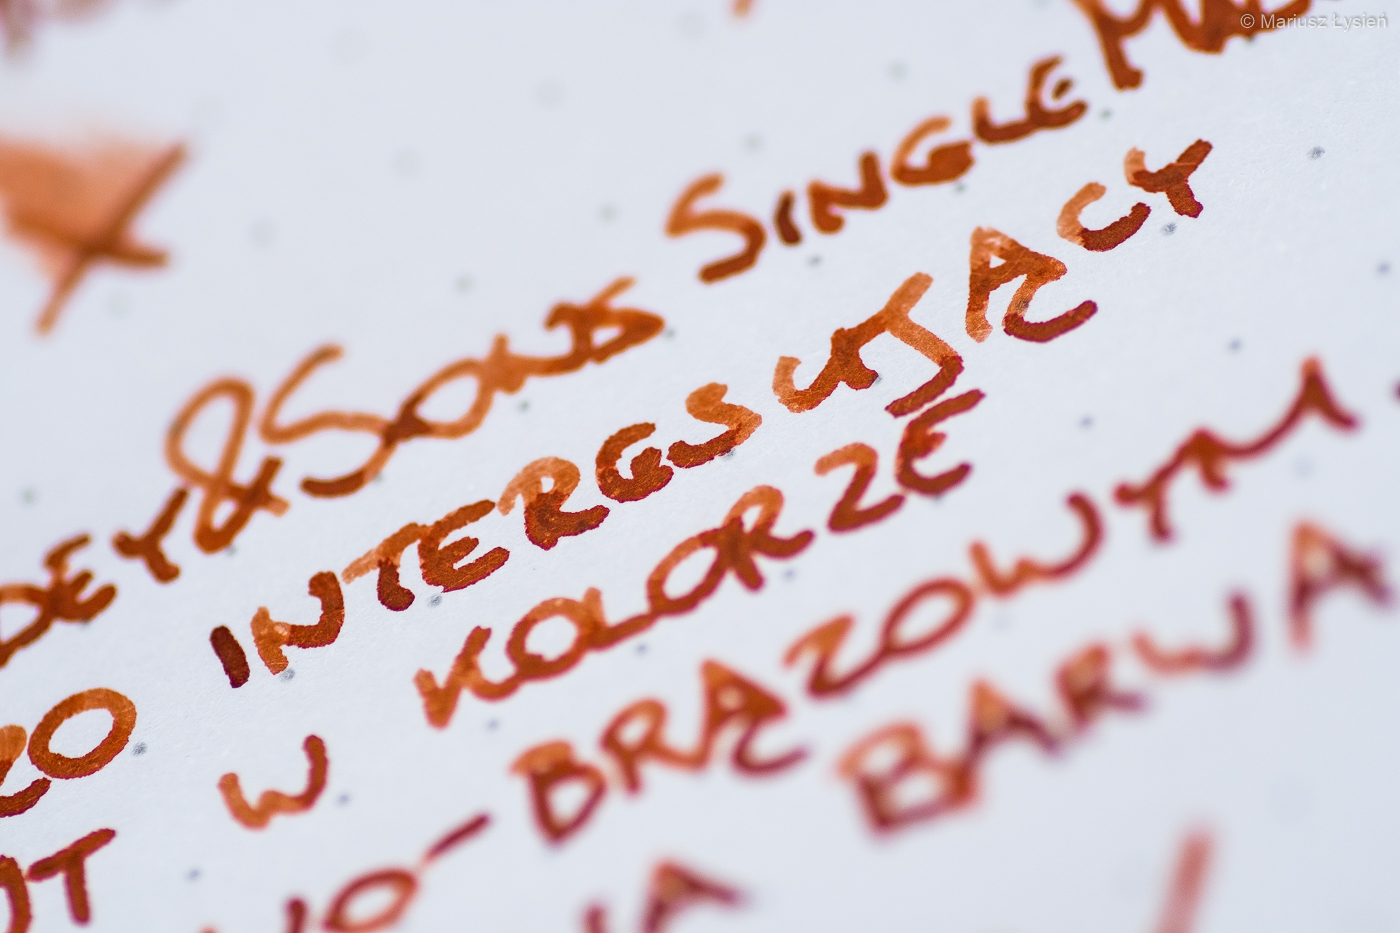 © Mariusz Łysień
DEY & SONS SINGLE
O INTERESUJĄCY
OT W KOLORZE
O-BRĄZOWYM
BARWA